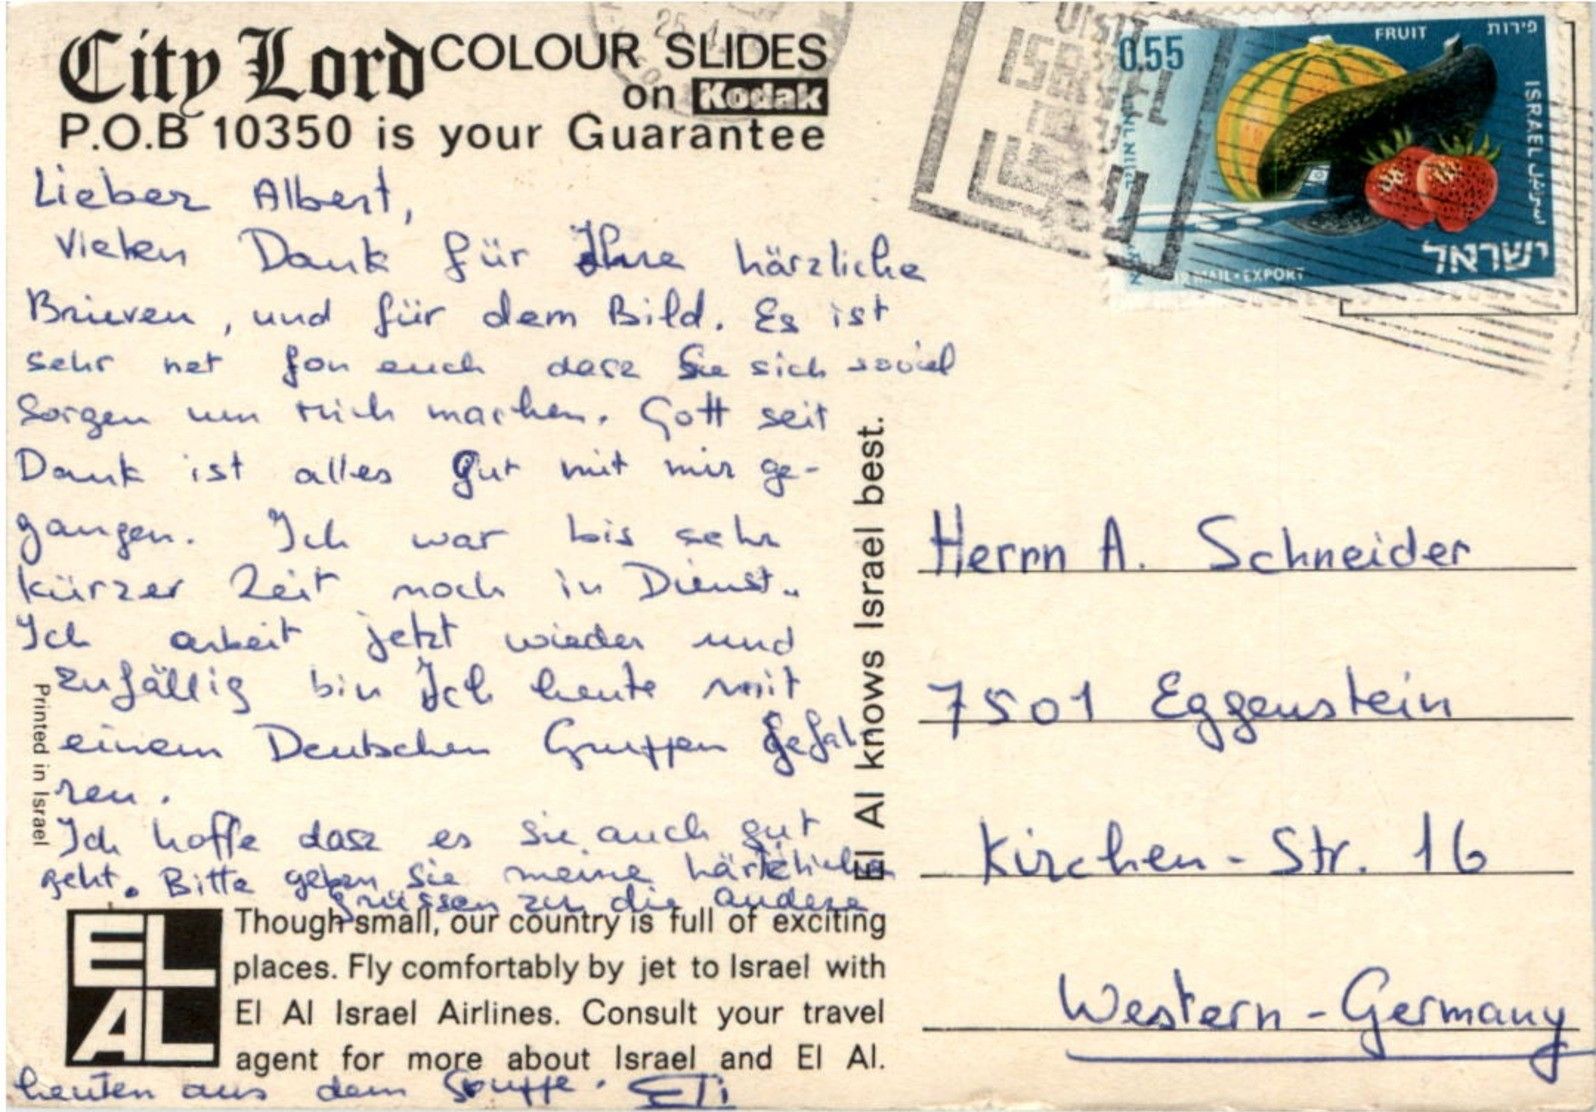 City Lord COLOUR SLIDES
on Kodak
P.O.B 10350 is your Guarantee
Lieber Albert,
Vielen Dank für Ihre härzliche
Brieven, und für dem Bild. Es ist
sehr net fon euch dasz Sie sich soviel
Sorgen um Mich machen. Gott seit
Dank ist alles gut mit mir ge-
gangen. Ich war bis sehr
kürzer Zeit noch in Dienst.
Ich arbeit jetzt wieder und
zufällig bin Ich heute mit
einem Deutschen Gruppen gefah
ren.
Ich hoffe dasz es sie auch gut
geht. Bitte geben Sie meine
grüssen zu die andere
Though small, our country is full of exciting
places. Fly comfortably by jet to Israel with
El Al Israel Airlines. Consult your travel
agent for more about Israel and El Al.
EL
AL
heuten aus dem Gruppe. ETi
Printed in Israel
El Al knows Israel best.
VISIT
ISRAEL
0.55
FRUIT
פירות
ISRAEL
اسرائيل
ישראל
AIR MAIL • EXPORT
Herrn A. Schneider
7501 Eggenstein
Kirchen - Str. 16
Western - Germany